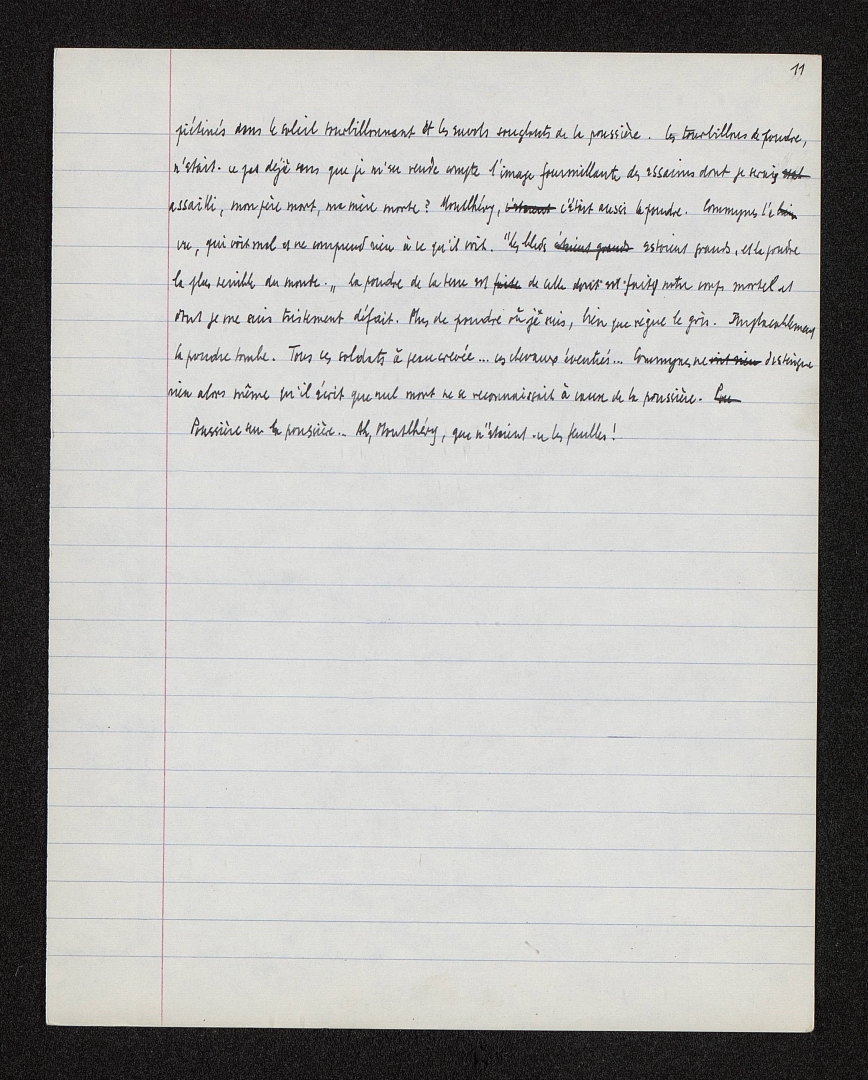 11
piétinés dans le soleil tourbillonnant et les envols sanglants de la poussière. Ces tourbillons de poudre,
n'était-ce pas déjà sans que je m'en rende compte l'image fourmillante des essaims dont je serais
assailli, mon père mort, ma mère morte ? Montlhéry, c'étaient c'était aussi la poudre. Commynes l'a bien
vu, qui voit mal et ne comprend rien à ce qu'il voit. "Les bleds étaient grands estoient grands, et la poudre
la plus terrible du monde." La poudre de la terre est faite de celle dont est fait notre corps mortel et
dont je me suis tristement défait. Plus de poudre où je suis, bien que règne le gris. Implacablement
la poudre tombe. Tous ces soldats à peau crevée... ces chevaux éventrés... Commynes ne voit rien distingue
rien alors même qu'il écrit que nul mort ne se reconnaissait à cause de la poussière.
Poussière sur la poussière... Ah, Montlhéry, que n'étaient-ce les feuilles !